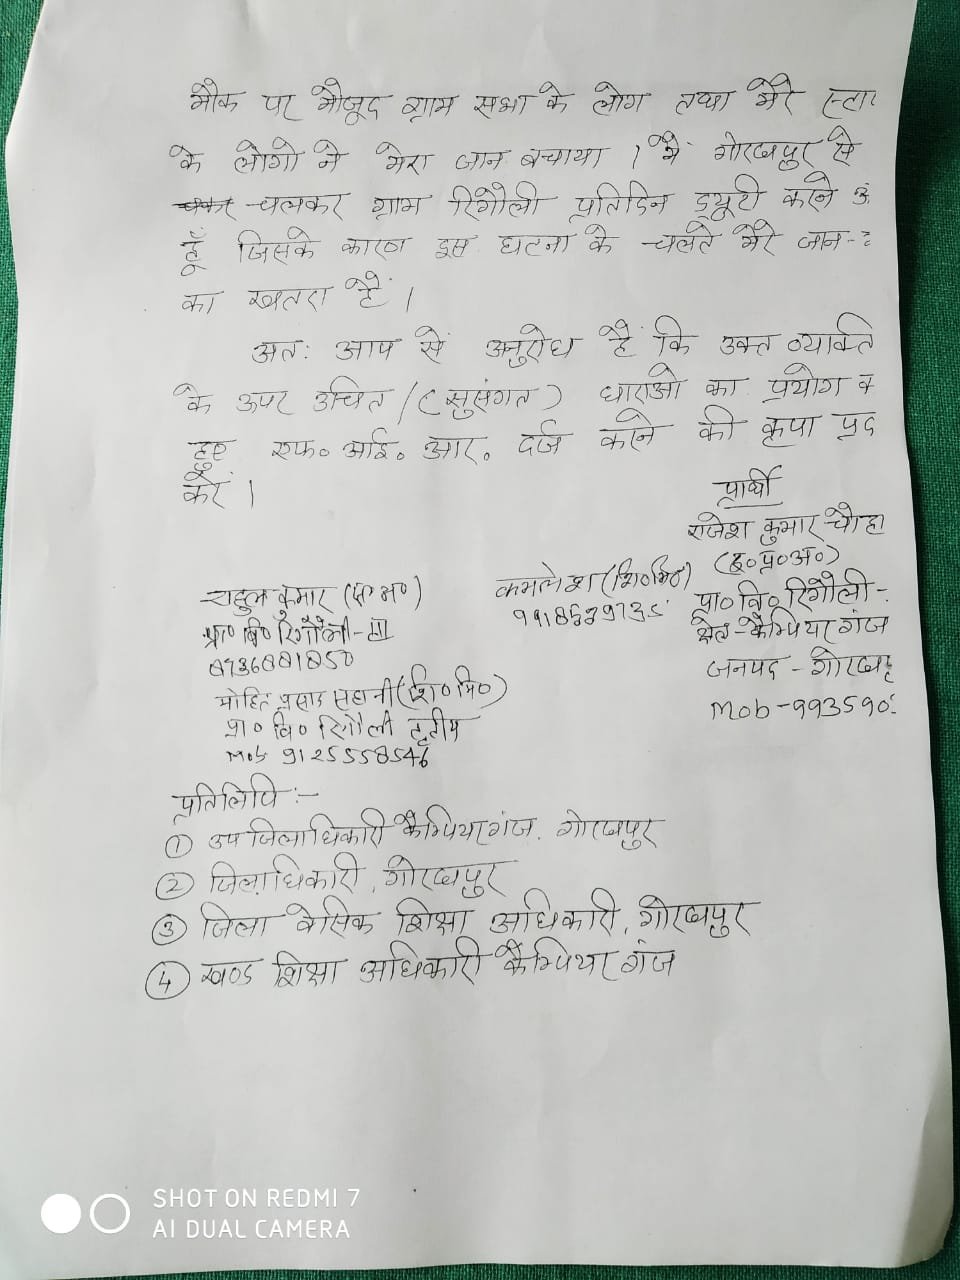 मौके पर मौजूद ग्राम सभा के लोग तथा मेरे
के लोगो ने मेरा जान बचाया । मैं गोरखपुर से
चलकर ग्राम रिगौली प्रतिदिन ड्यूटी करने
हूँ जिसके कारण इस घटना के चलते मेरे जान-
का खतरा है ।
अतः आप से अनुरोध है कि उक्त व्यक्ति
के ऊपर उचित/(सुसंगत) धाराओ का प्रयोग
हुए एफ० आई० आर० दर्ज करने की कृपा
करें ।
प्रार्थी
राजेश कुमार
(इ०प्र०अ०)
प्रा० वि० रिगौली-
क्षेत्र-कैम्पियरगंज
जनपद -
Mob-993590
कमलेश (शि०मि०)
राहुल कुमार (स० अ०)
प्रा० वि० रिगौली-III
8736881850
मोहित प्रसाद सहानी (शि० मि०)
प्रा० वि० रिगौली तृतीय
Mob 9125558546
प्रतिलिपि :-
① उप जिलाधिकारी कैम्पियरगंज, गोरखपुर
② जिलाधिकारी, गोरखपुर
③ जिला बेसिक शिक्षा अधिकारी, गोरखपुर
④ खण्ड शिक्षा अधिकारी कैम्पियरगंज
SHOT ON REDMI 7
AI DUAL CAMERA